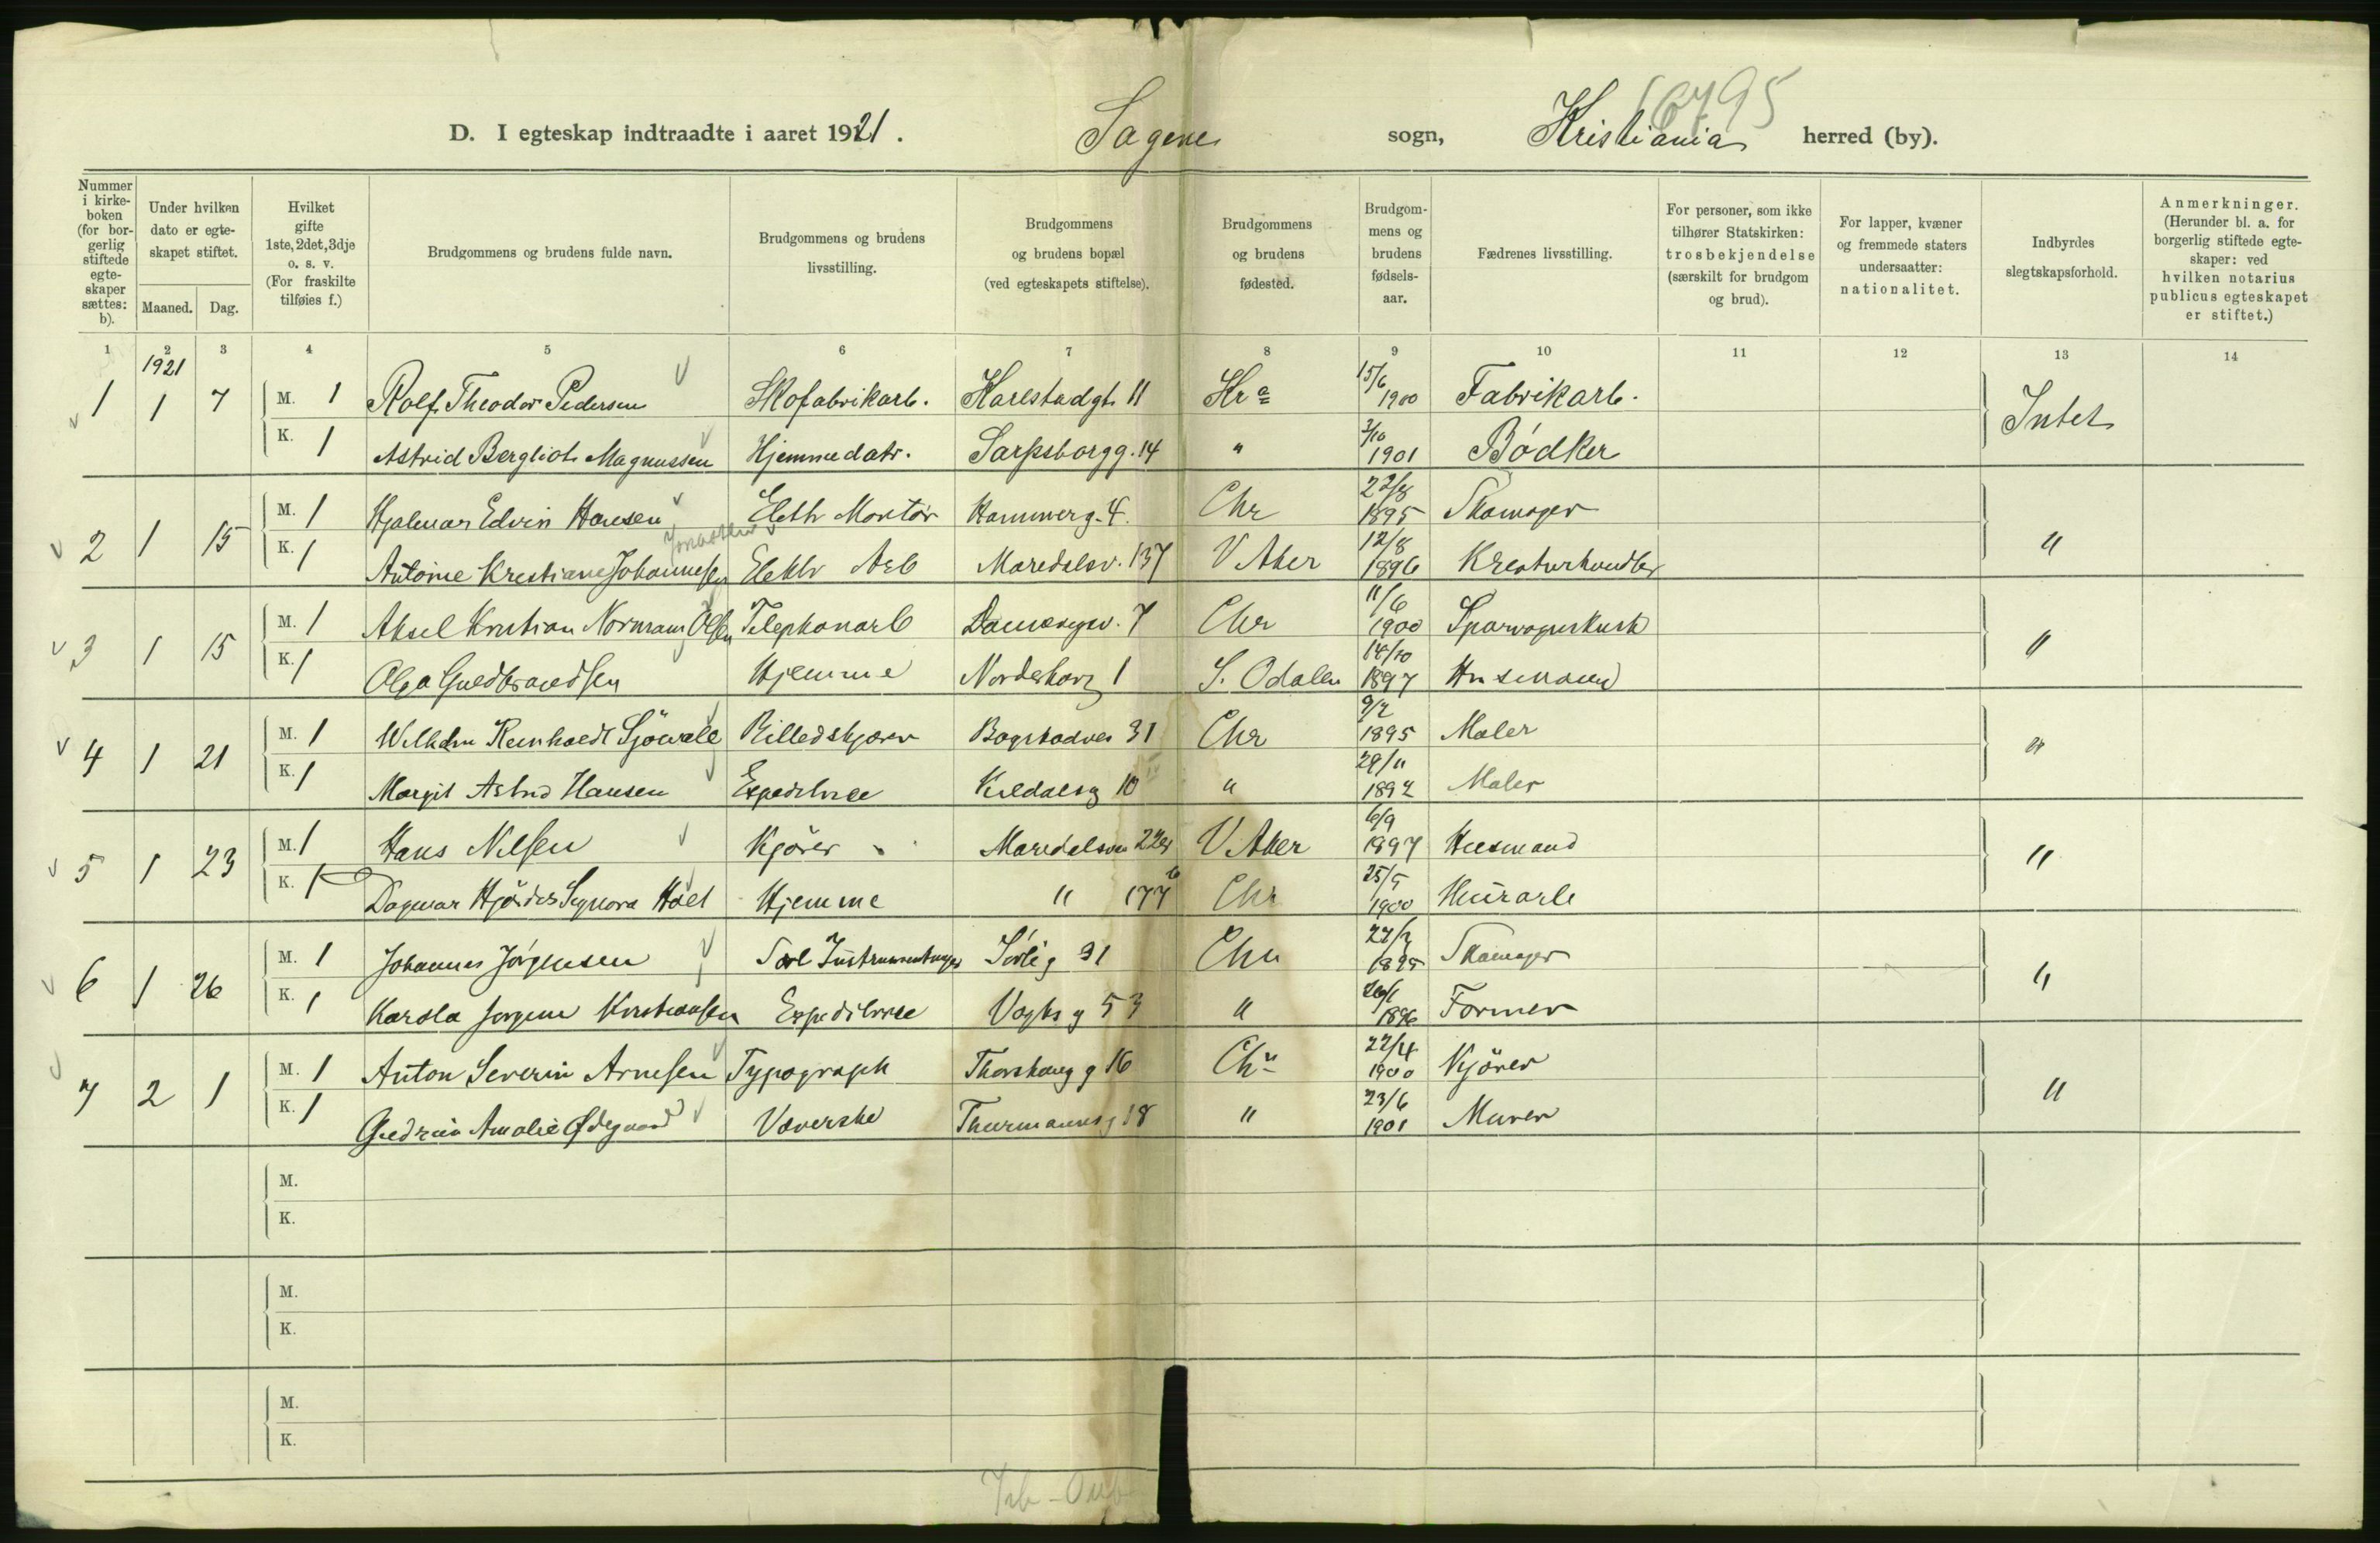 6795
D. I egteskap indtraadte i aaret 1921. Sagene sogn, Kristiania herred (by).
Nummer i kirkeboken (for borgerlig stiftede egteskaper sættes: b).
Under hvilken dato er egteskapet stiftet.
Maaned. Dag.
Hvilket gifte 1ste, 2det, 3dje o. s. v. (For fraskilte tilføies f.)
Brudgommens og brudens fulde navn.
Brudgommens og brudens livsstilling.
Brudgommens og brudens bopæl (ved egteskapets stiftelse).
Brudgommens og brudens fødested.
Brudgommens og brudens fødselsaar.
Fædrenes livsstilling.
For personer, som ikke tilhører Statskirken: trosbekjendelse (særskilt for brudgom og brud).
For lapper, kvæner og fremmede staters undersaatter: nationalitet.
Indbyrdes slegtskapsforhold.
Anmerkninger. (Herunder bl. a. for borgerlig stiftede egteskaper: ved hvilken notarius publicus egteskapet er stiftet.)
1 2 3 4 5 6 7 8 9 10 11 12 13 14
1921
1 1 7 M. 1 Rolf Theodor Pedersen Skofabrikarb. Karlstadgt. 11 Kr a 15/6 1900 Fabrikarb. Intet
K. 1 Astrid Bergliot Magnussen Hjemmedatr. Sarpsborgg. 14 " 3/10 1901 Bødker
2 1 15 M. 1 Hjalmar Edvin Hansen Elektr Montör Hammerg. 4. Chr 22/8 1895 Skomager "
K. 1 Antoine Kristiane Johannesen Elektr Arb Maredalsv. 137 V Aker 12/8 1896 Kreaturhandler
3 1 15 M. 1 Aksel Kristian Normann Olsen Telephonarb 7 Chr 11/6 1900 Sporvognskusk "
K. 1 Olga Guldbrandsen Hjemme Norderhovg 1 S. Odalen 14/10 1897 Husmand
4 1 21 M. 1 Wilhelm Reinholdt Sjöwall Billedskjærer Bogstadvei 31 Chr 9/2 1895 Maler "
K. 1 Margit Astrid Hansen Expeditrice 10 " 29/11 1892 Maler
5 1 23 M. 1 Hans Nilsen Kjörer Maredalsvn V. Aker 6/9 1897 Husmand "
K. 1 Dagmar Hjördis Signora Holt Hjemme " 177 b Chr 25/5 1900 Murarb
6 1 26 M. 1 Johannes Jörgensen Instrumentmager Sörlig 31 Chr 22/2 1895 Skomager "
K. 1 Karola Jorgine Kristiansen Expeditrice Vogtsg 53 " 26/1 1896 Former
7 2 1 M. 1 Anton Severin Arnesen Typograph Thorshaugg 16 Chr 22/4 1900 Kjörer "
K. 1 Gudrun Amalie Ødegaard Væverske Thurmannsg 18 " 23/6 1901 Murer
M.
K.
M.
K.
M.
K.